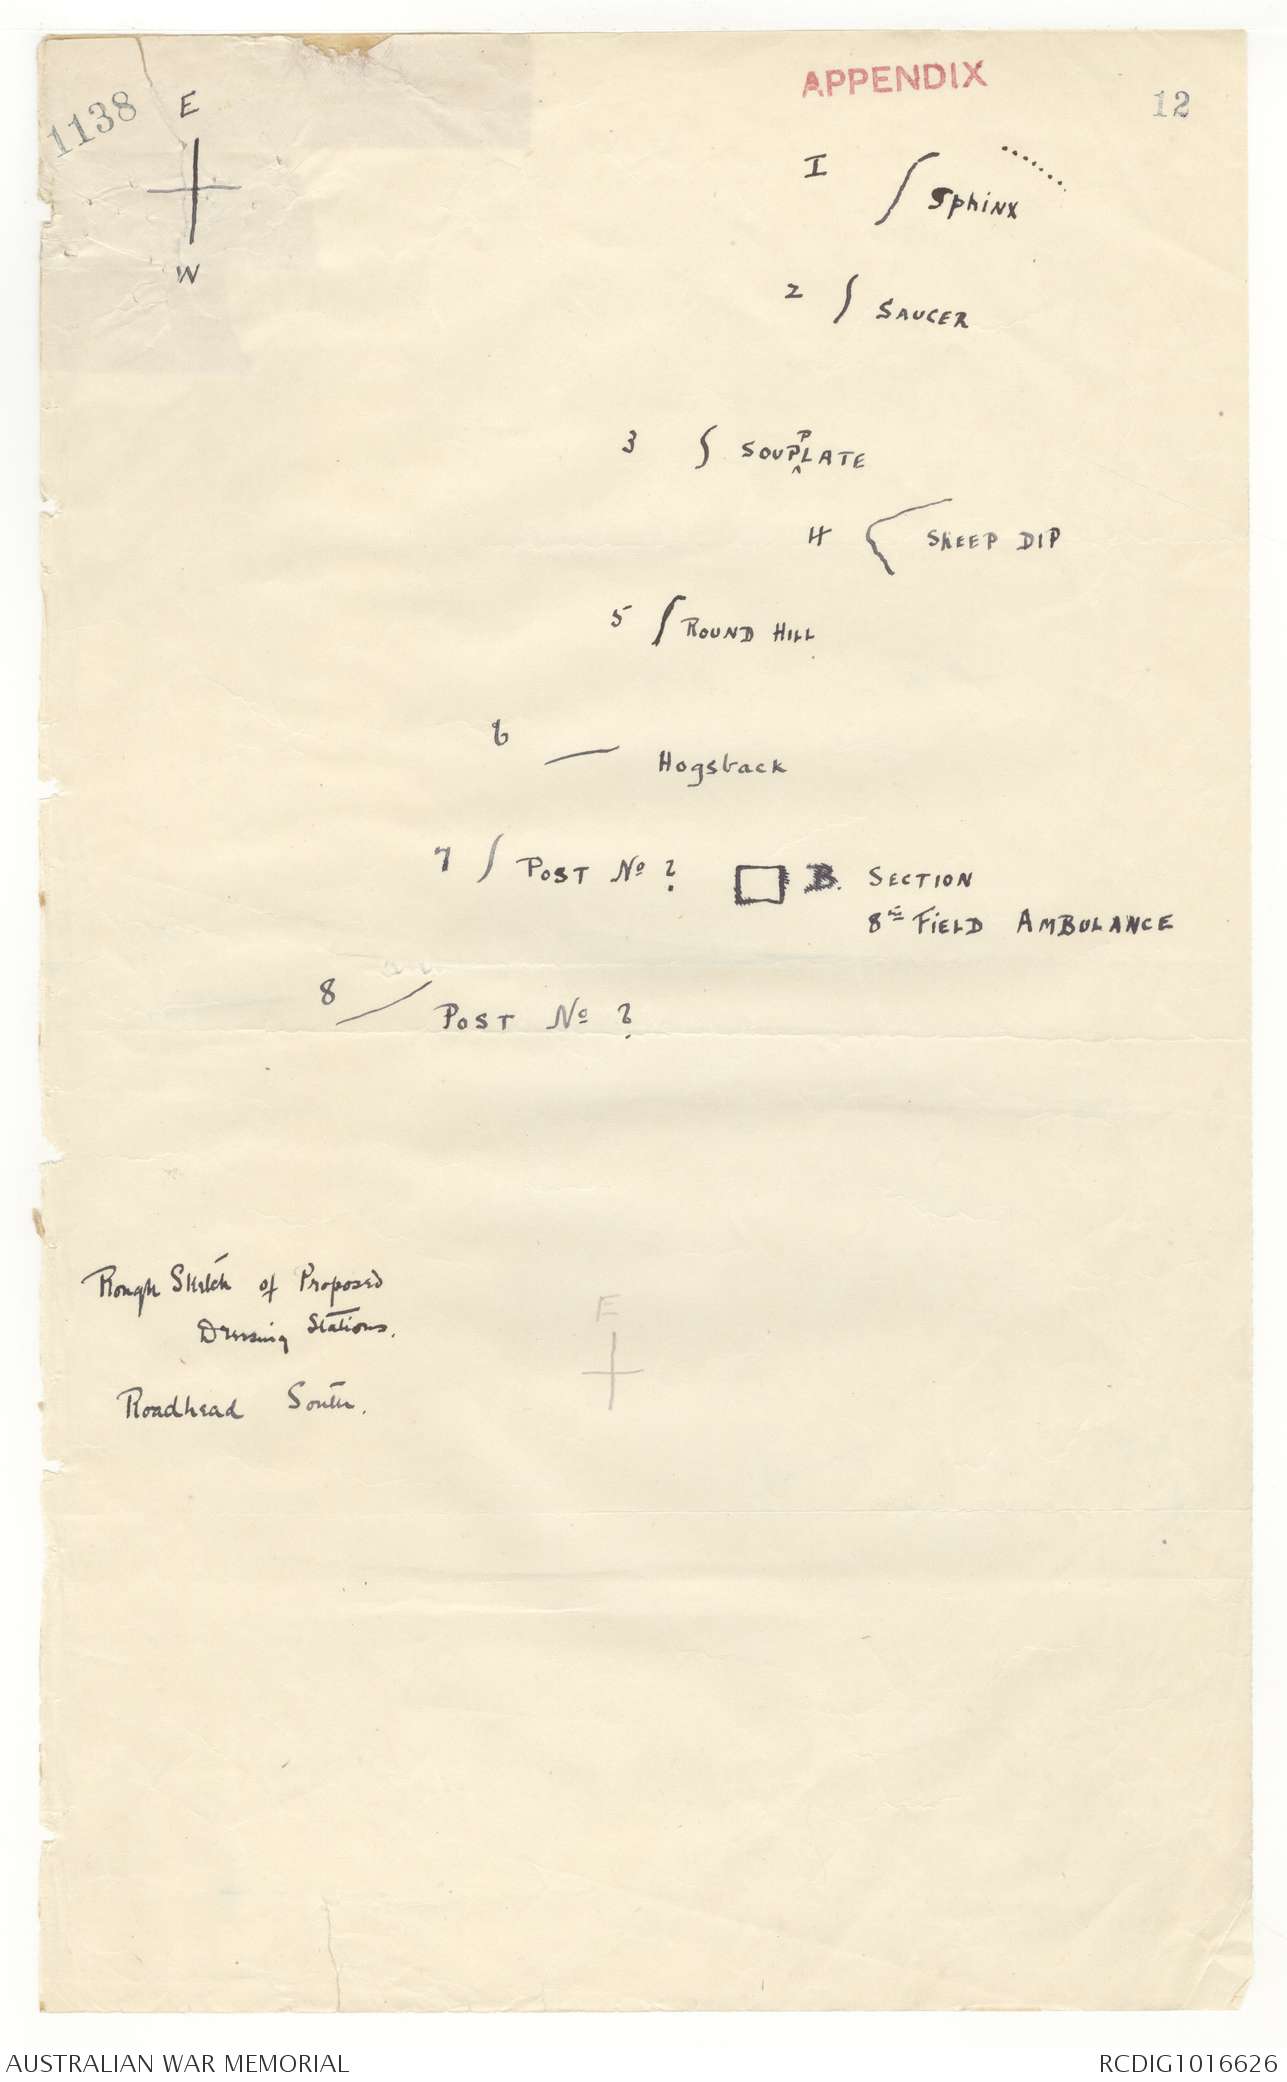 APPENDIX
1138
12
E
W
I Sphinx
2 SAUCER
3 SOUPPLATE
4 SHEEP DIP
5 ROUND HILL
6 Hogsback
7 POST No ?
B. SECTION
8th FIELD AMBULANCE
8 POST No ?
Rough Sketch of Proposed
Dressing Stations.
Roadhead South.
E
AUSTRALIAN WAR MEMORIAL
RCDIG1016626